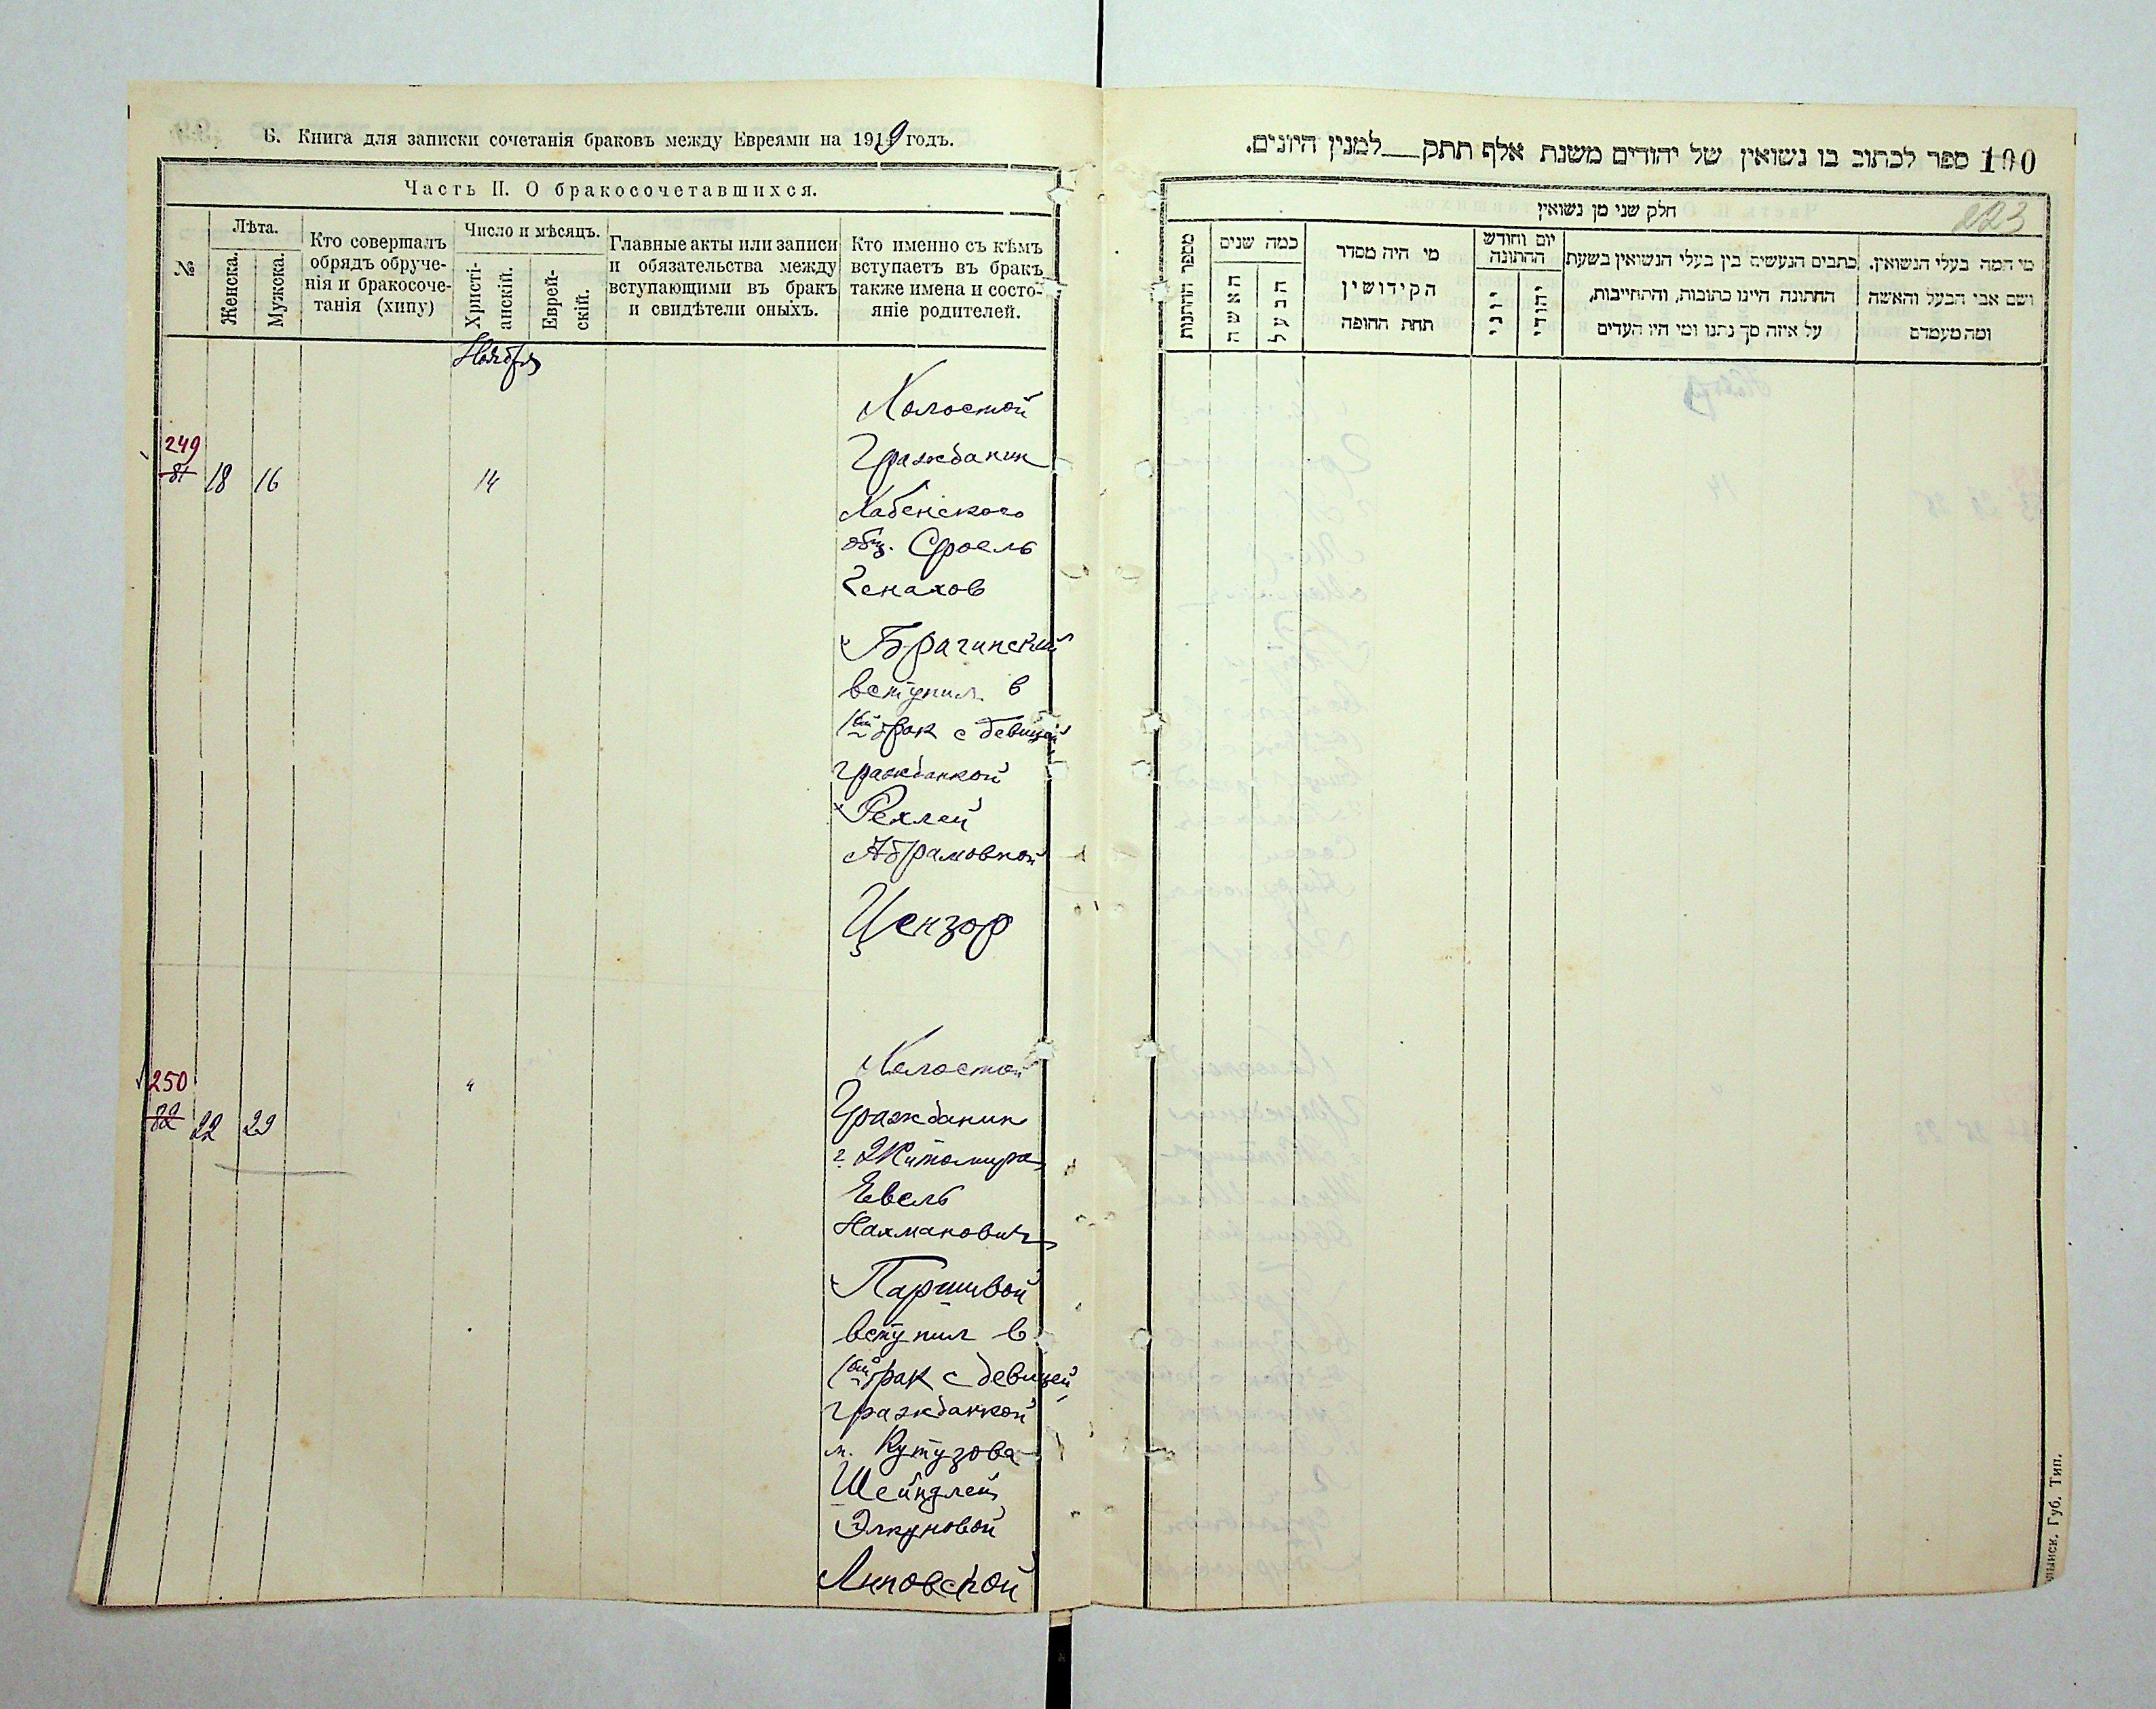 Б. Книга для записки сочетанія браковъ между Евреями на 1919 годъ.
Часть II. О бракосочетавшихся.
№
Лѣта.
Женска.
Мужска.
Кто совершалъ
обрядъ обруче-
нія и бракосоче-
танія (хипу)
Число и мѣсяцъ.
Христі-
анскій.
Еврей-
скій.
Главные акты или записи
и обязательства между
вступающими въ бракъ
и свидѣтели оныхъ.
Кто именно съ кѣмъ
вступаетъ въ бракъ
также имена и состо-
яніе родителей.
Ноября
249
81
18
16
14
Холостой
Гражданин
Хабенского
общ. Сроель
Генахов
Брагинский
вступил в
1ый брак с девицей
гражданкой
Рехлей
Абрамовной
Цензор
250
82
22
29
"
Холостой
Гражданин
г. Житомира
Евель
Нахманович
Паршивой
вступил в
1ый брак с девицей
гражданкой
м. Кутузова
Шейндлей
Элкуновой
Липовской
100 ספר לכתוב בו נשואין של יהודים משנת אלף תתק למנין היונים.
223
חלק שני מן נשואין
מספר החתונות
כמה שנים
האשה
הבעל
מי היה מסדר
הקידושין
תחת החופה
יום וחודש
החתונה
יוני
יהודי
כתבים הנעשים בין בעלי הנשואין בשעת
החתונה היינו כתובות, והתחייבות,
על איזה סך נתנו ומי היו העדים
מי המה בעלי הנשואין.
ושם אבי הבעל והאשה
ומה מעמדם
Губ. Тип.